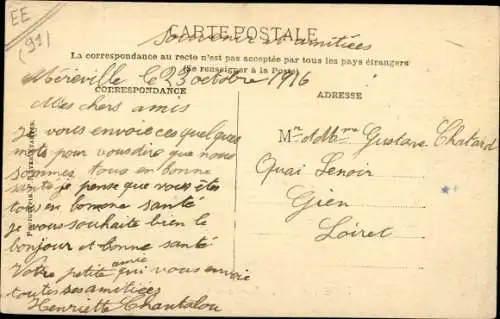 EE
(91)
CARTE POSTALE
Souvenir et amitiées
La correspondance au recto n'est pas acceptée par tous les pays étrangers
(Se renseigner à la Poste)
Méréville le 23 octobre 1916
CORRESPONDANCE
Mes chers amis
Je vous envoie ces quelques
mots pour vous dire que nous
sommes tous en bonne
santé je pense que vous êtes
tous en bonne santé
je vous souhaite bien le
bonjour et bonne santé
Votre petite amie qui vous envoie
toutes ses amitiées
Henriette Chantalou
ADRESSE
Mr et Mme Gustave Chatard
Quai Lenoir
Gien
Loiret